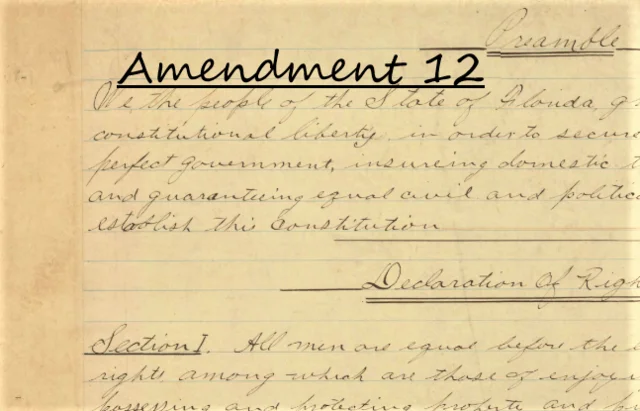 Preamble
Amendment 12
We the people of the State of Florida, g
constitutional liberty, in order to secure
perfect government, insureing domestic t
and guaranteeing equal civil and politica
establish this Constitution
Declaration Of Righ
Section I. All men are equal before the
rights among which are those of enjoyi
possessing and protecting property, and